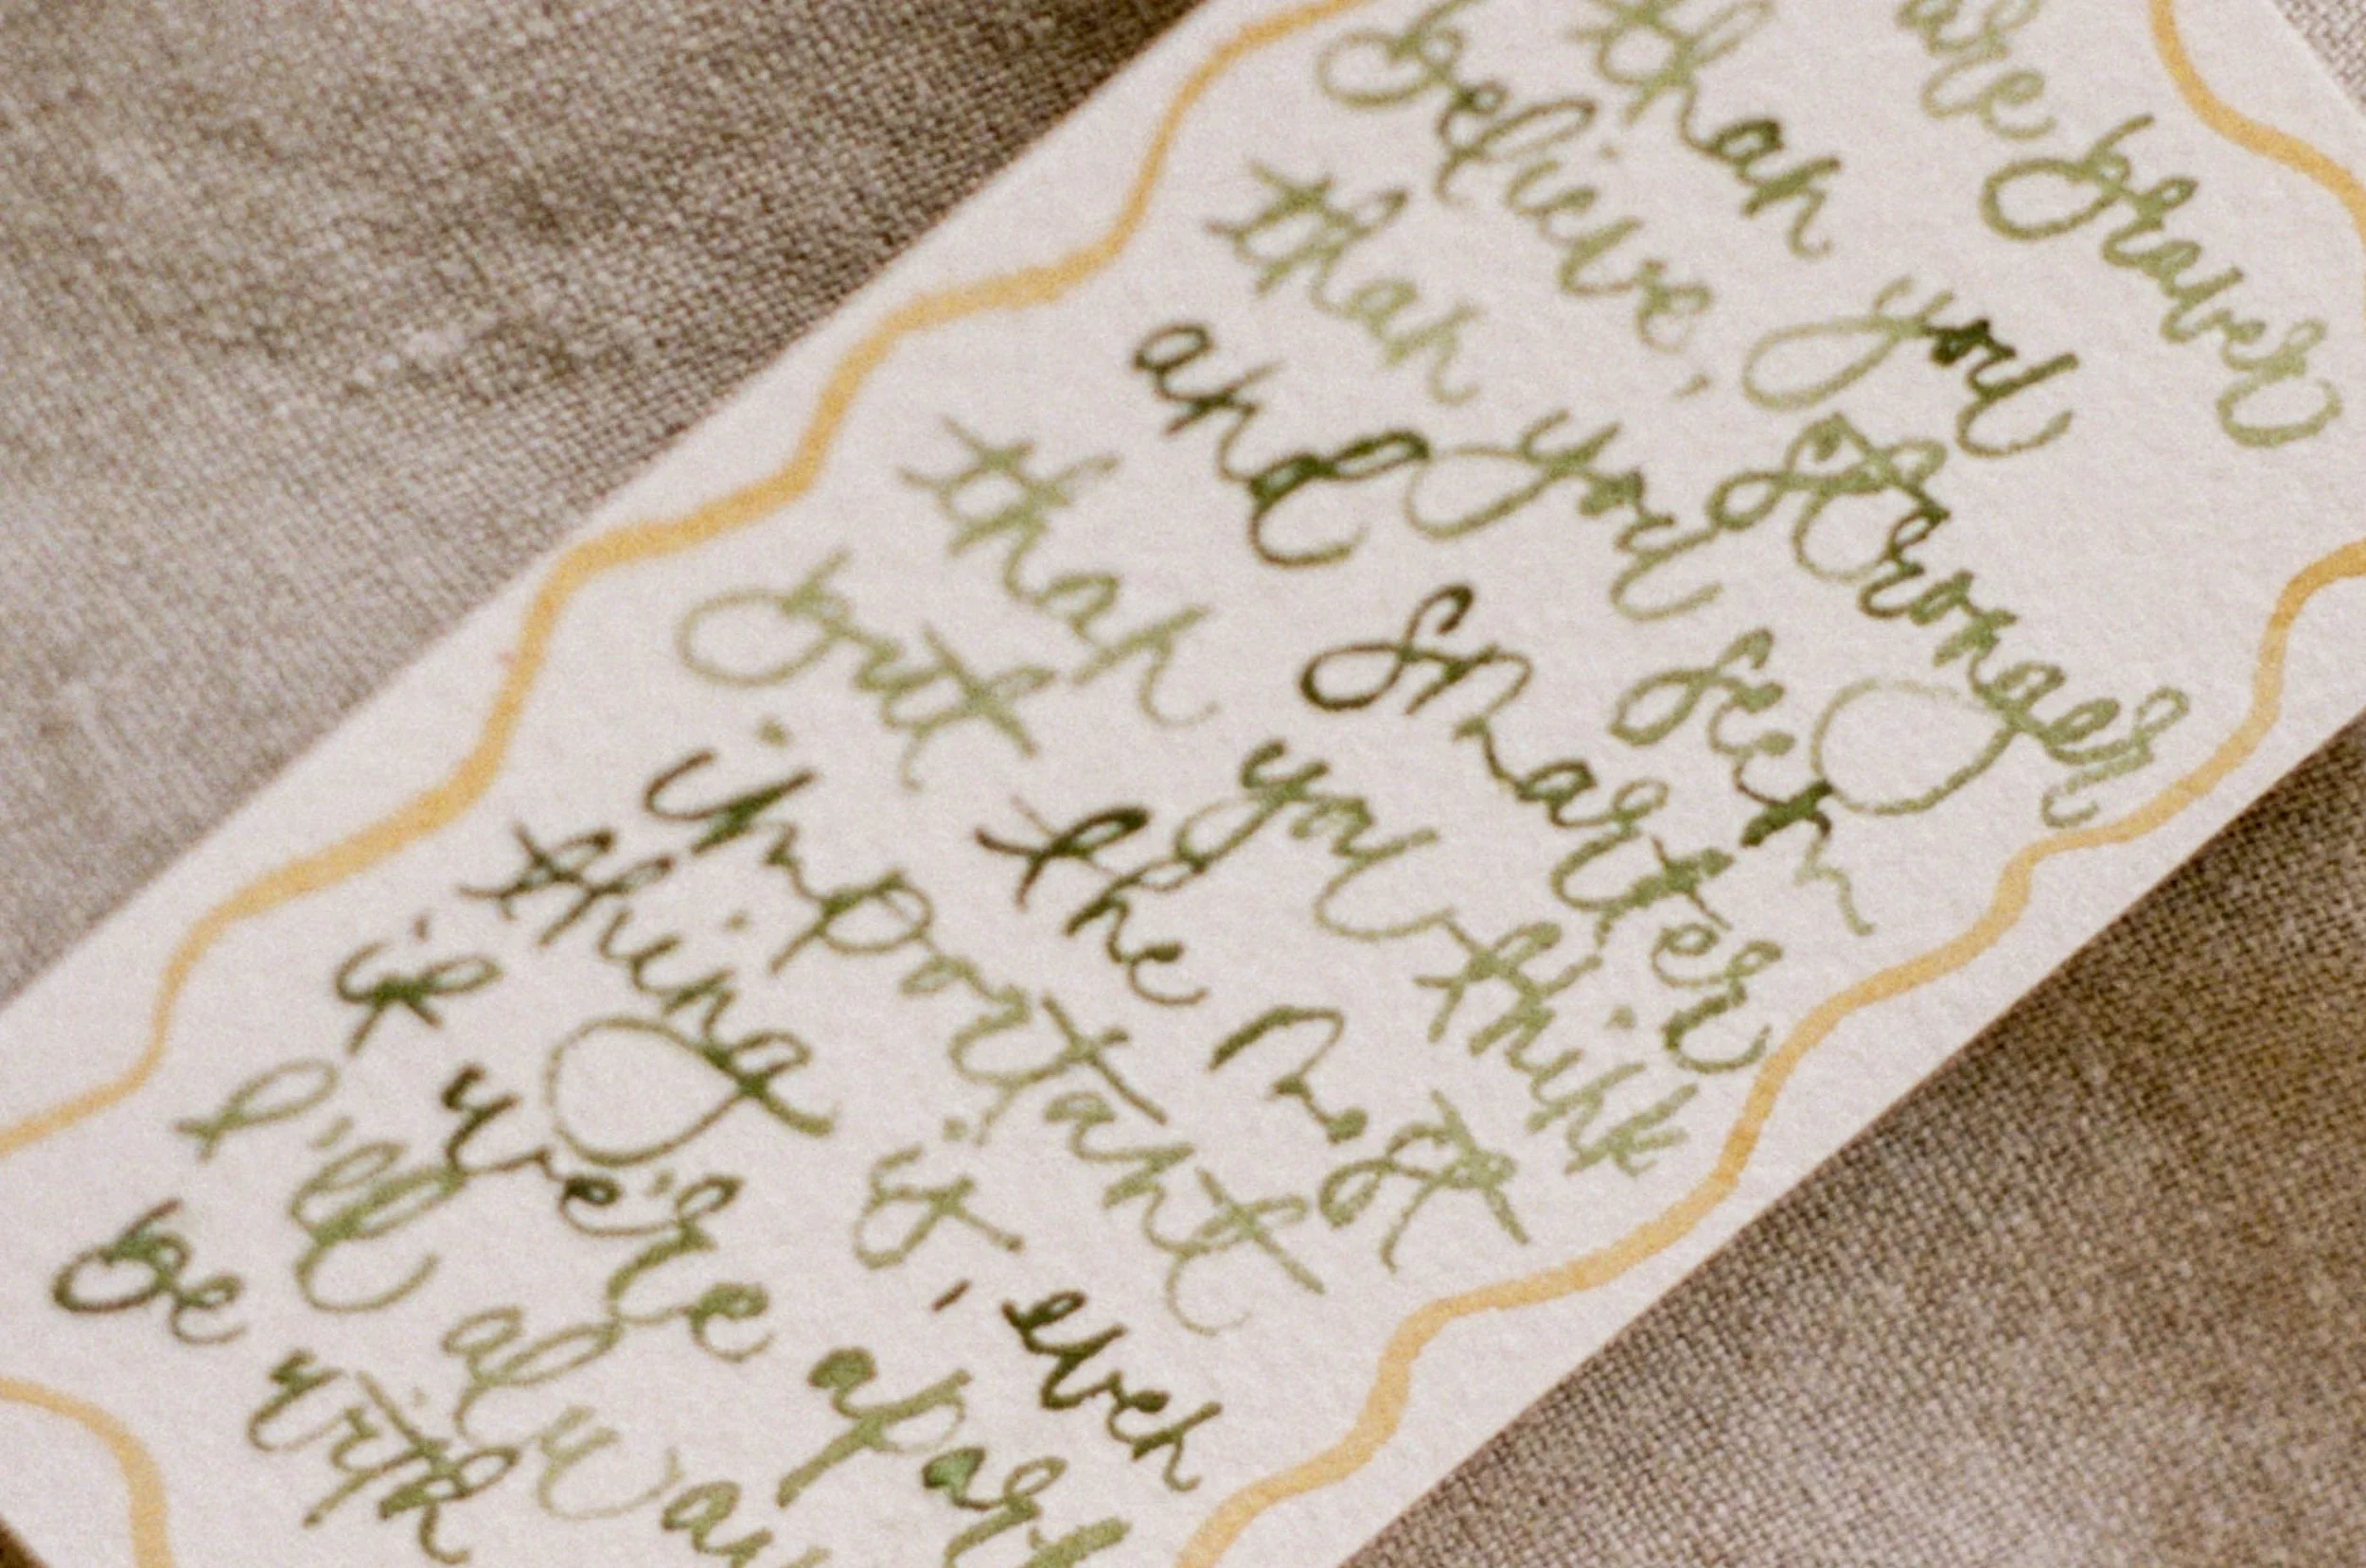 are braver
than you
believe, stronger
than you seem
and smarter
than you think
but the most
important
thing is, even
if we're apart
I'll alway
be with